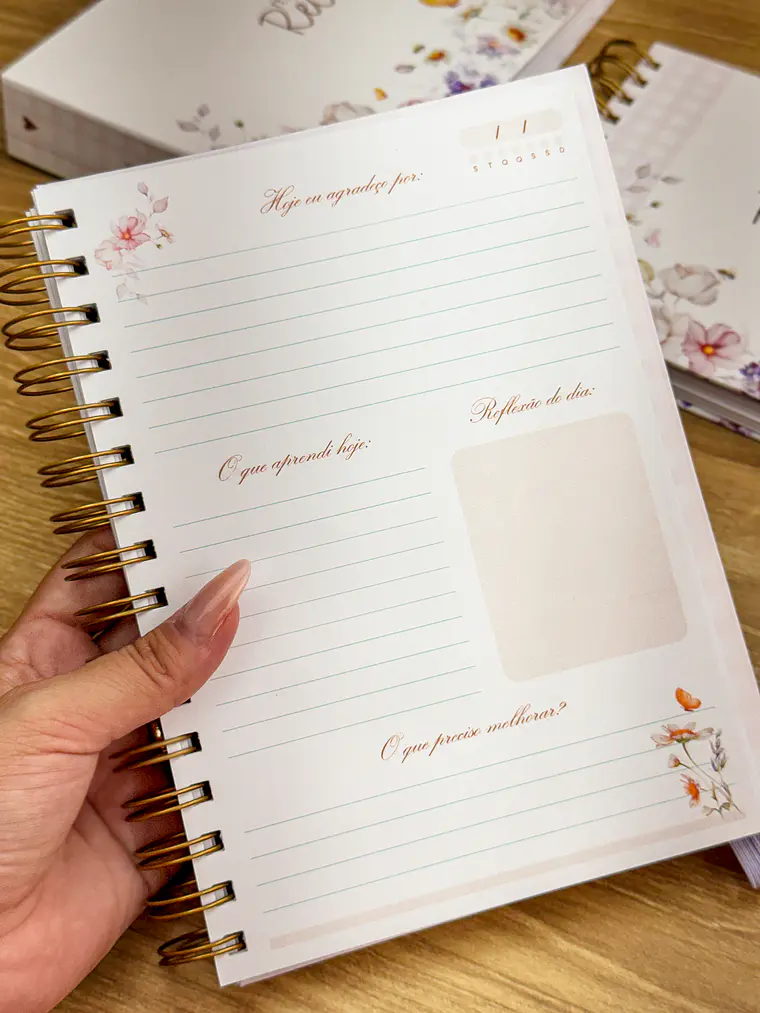 / /
S T Q Q S S D
Hoje eu agradeço por:
Reflexão do dia:
O que aprendi hoje:
O que preciso melhorar?